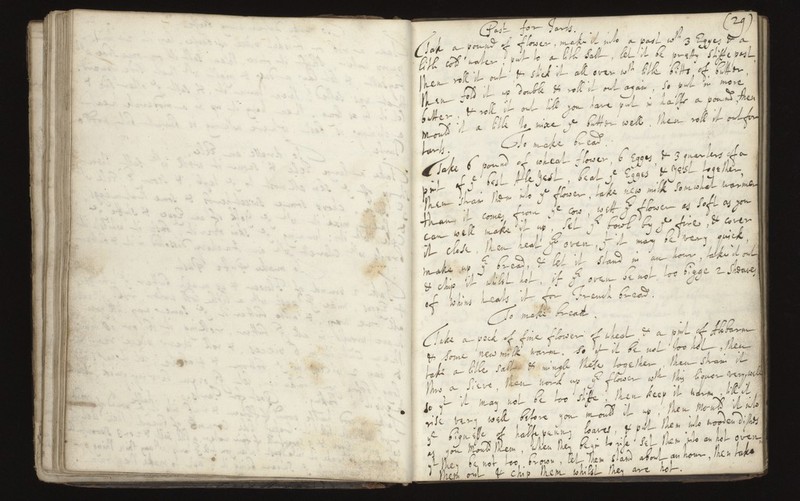 (29)
Past for Tarts.
Take a pound of flower, make itt into a past wth 3 Egges & a
litle cold water, put to a litle salt, let it be pretty stiffe past
then roll it out & stick it all over wth litle bitts of butter,
then fold it up double & roll it out again, so put in more
butter, & roll it out till you have put in halfe a pound, then
mould it a litle to mixe ye butter well. then roll it out for
tarts.
To make bread.
Take 6 pound of wheat flower, 6 Egges & 3 quarters of a
pint of ye best Ale yest, beat ye Egges & yest together,
then strain them into ye flower, take new milk somewhat warmer
than it comes from ye cow, wett ye flower as soft as you
can well make it up. Set ye bowl by ye fire, & cover
it close, then heat ye oven, yt it may be very quick,
make up ye bread, & let it stand in an hour, take it out
& chip it whilst hot, if ye oven be not too bigge 2 sheaves
of whins heats it for French bread.
To make bread.
Take a peck of fine flower of wheat & a pint of Ale barm
& some new milk warm, so yt it be not too hot, then
take a litle salt & mingle these together, then strain it
thro a sieve, then work up ye flower wth this liquor very well
so yt it may not be too stiffe, then keep it warm, till it
rise very well before you mould it up, then mould it into
ye bignesse of halfe penny loaves, & put them into wooden dishes
as you mould them, when they begin to rise, set them into an hot oven
yt they be not too brown, let them stand about an hour, then take
them out & chip them whilst they are hot.